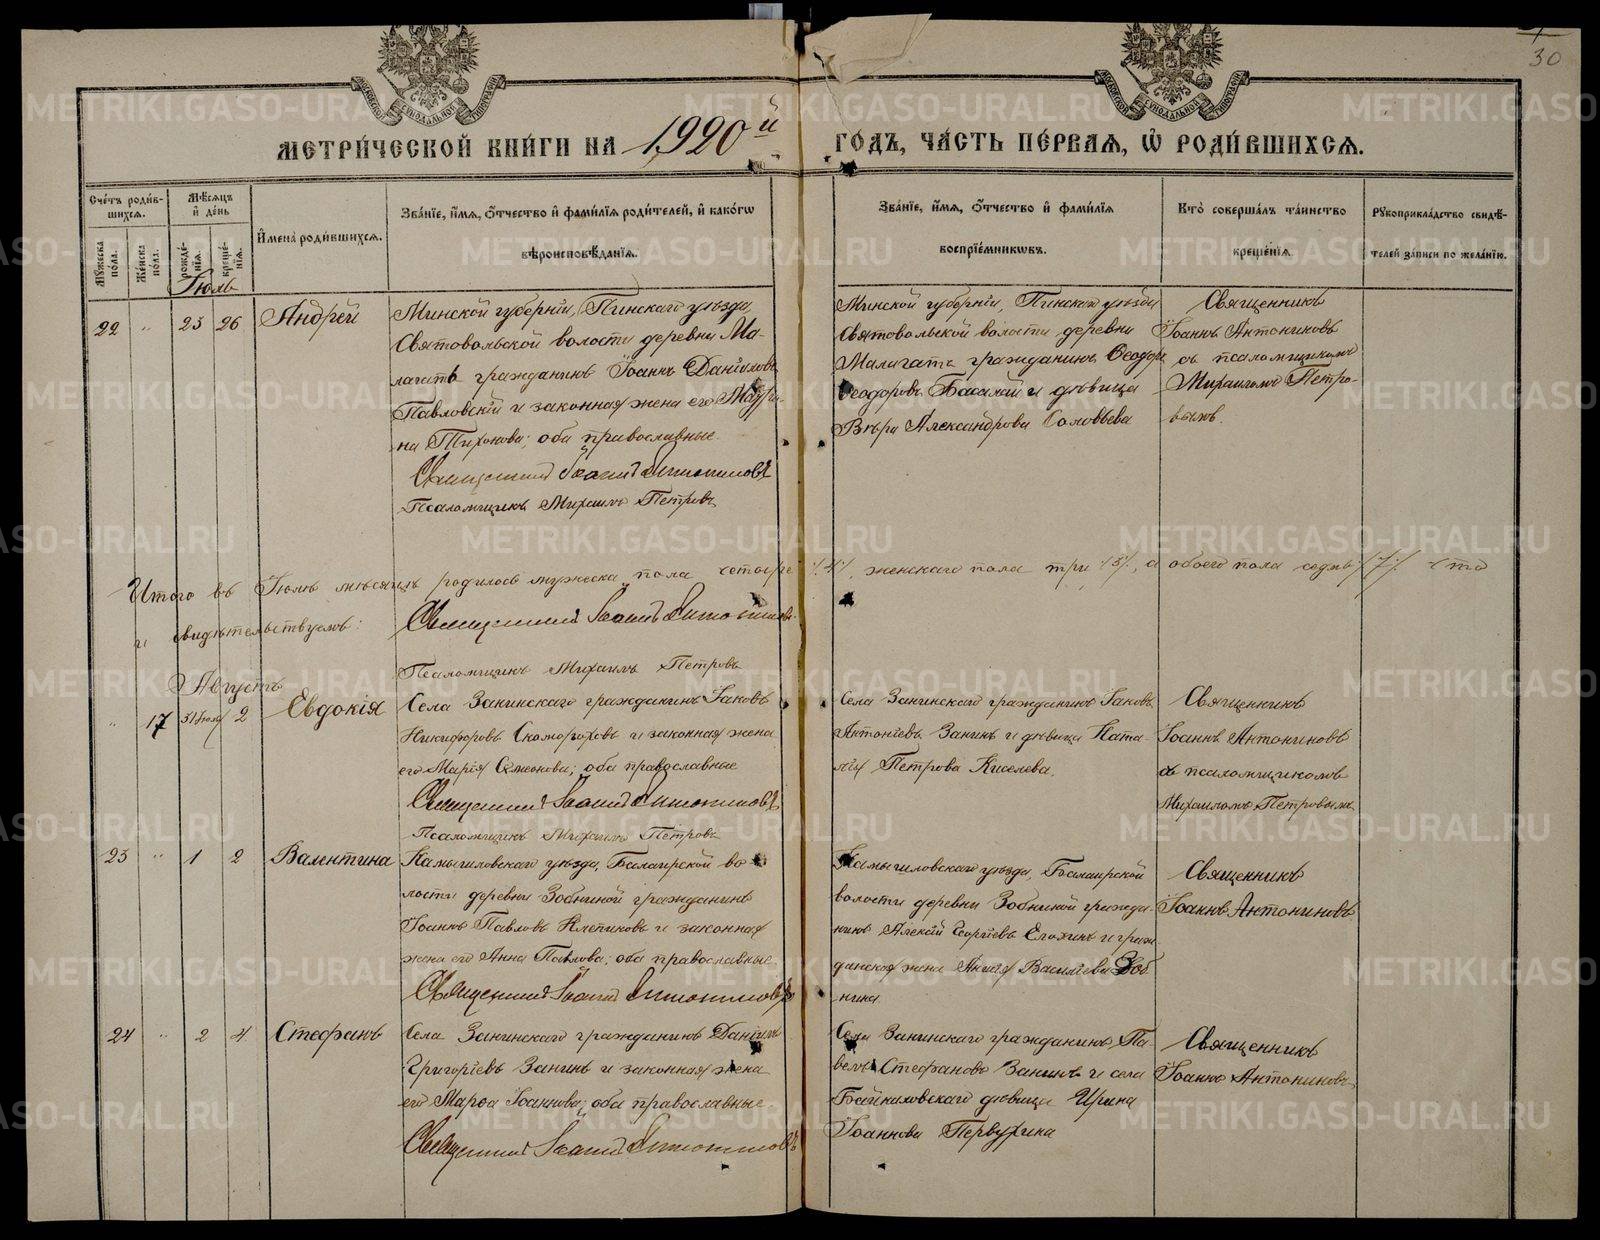 30
МЕТРИ́ЧЕСКОЙ КНИ́ГИ НА 1920й ГО́ДЪ, ЧА́СТЬ ПЕ́РВАѦ, Ѡ РОДИ́ВШИХСѦ.
Сче́тъ роди́вшихсѧ.
Мꙋ́жеска по́ла.
Же́нска по́ла.
Мѣ́сѧцъ и҆ де́нь
рожде́нїѧ.
креще́нїѧ.
И҆мена̀ роди́вшихсѧ.
Зва́нїе, и҆́мѧ, ѻ҆́тчество и҆ фами́лїѧ роди́телей, и҆ како́гѡ
вѣроисповѣ́данїѧ.
Зва́нїе, и҆́мѧ, ѻ҆́тчество и҆ фами́лїѧ
воспрїе́мникѡвъ.
Кто̀ соверша́лъ та́инство
креще́нїѧ.
Рꙋкоприкла́дство свидѣ́-
телей за́писи по жела́нїю.
Іюль
22 " 23 26 Андрей
Минской губерніи, Пинскаго уѣзда,
Святовольской волости деревни Ма-
лагать гражданинъ Іоаннъ Даніиловъ
Павловскій и законная жена его Матро-
на Тихонова; оба православные.
Священникъ Іоаннъ Антониновъ
Псаломщикъ Михаилъ Петровъ
Минской губерніи, Пинскаго уѣзда
Святовольской волости деревни
Малагать гражданинъ Ѳеодоръ
Ѳеодоровъ Басалай и дѣвица
Вѣра Александрова Соловьева
Священникъ
Іоаннъ Антониновъ
съ псаломщикомъ
Михаиломъ Петро-
вымъ.
Итого въ Іюлѣ мѣсяцѣ родилось мужеска пола четыре /4/, женскаго пола три /3/, а обоего пола семь /7/ что
и свидѣтельствуемъ:
Священникъ Іоаннъ Антониновъ
Псаломщикъ Михаилъ Петровъ
Августъ
" 17 31 Іюля 2 Евдокія
Села Занинскаго гражданинъ Іаковъ
Никифоровъ Скомороховъ и законная жена
его Марія Симеонова; оба православные
Священникъ Іоаннъ Антониновъ
Псаломщикъ Михаилъ Петровъ
Села Занинскаго гражданинъ Іаковъ
Антоніевъ Занинъ и дѣвица Ната-
лія Петрова Киселева.
Священникъ
Іоаннъ Антониновъ
съ псаломщикомъ
Михаиломъ Петровымъ
23 " 1 2 Валентина
Камышловскаго уѣзда, Балаирской во-
лости деревни Зобниной гражданинъ
Іоаннъ Павловъ и законная
жена его Анна Павлова; оба православные
Священникъ Іоаннъ Антониновъ
Камышловскаго уѣзда, Балаирской
волости деревни Зобниной гражда-
нинъ Алексій Георгіевъ Елохинъ и граж-
данская жена Васильева Зоб-
нина.
Священникъ
Іоаннъ Антониновъ
24 " 2 4 Стефанъ
Села Занинскаго гражданинъ Даніилъ
Григоріевъ Занинъ и законная жена
его Марѳа Іоаннова; оба православные
Священникъ Іоаннъ Антониновъ
Села Занинскаго гражданинъ Па-
велъ Стефановъ Занинъ и села
дѣвица Ирина
Іоаннова Первухина
Священникъ
Іоаннъ Антониновъ
METRIKI.GASO-URAL.RU